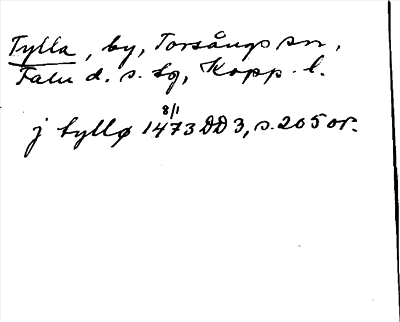 Tylla, by, Torsångs sn,
Falu d. s. tg, Kopp. l.
8/1
j tyllø 1473 DD 3, s. 205 or.